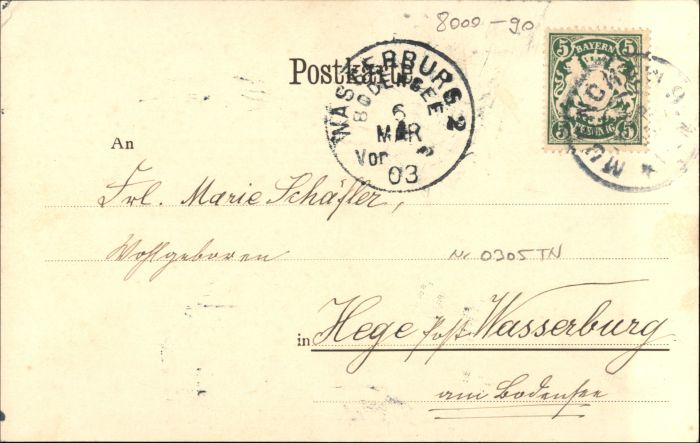 8000-90
5 BAYERN 5
5 PFENNIG 5
Postkarte
WASSERBURG 2
BODENSEE
6
MAR
Vor
03
An
Frl. Marie Schäfler,
Wohlgeboren
Nr 0305 TN
in Hege Post Wasserburg
am Bodensee